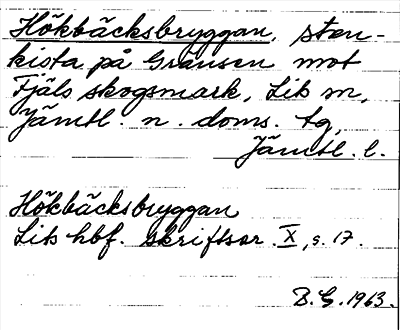 Hökbäcksbryggan, sten-
kista på Gränsen mot
Fjäls skogsmark, Lits sn,
Jämtl. n. doms. tg,
Jämtl. l.
Hökbäcksbryggan
Lits hbf. skriftser. X, s. 17.
B.G. 1963.